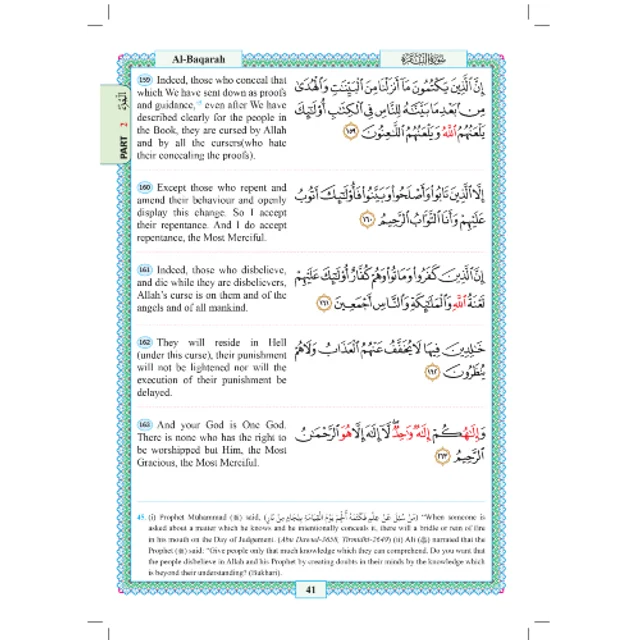 Al-Baqarah
سورة البقرة
159 Indeed, those who conceal that
which We have sent down as proofs
and guidance,45 even after We have
described clearly for the people in
the Book, they are cursed by Allah
and by all the cursers(who hate
their concealing the proofs).
إِنَّ ٱلَّذِينَ يَكْتُمُونَ مَآ أَنزَلْنَا مِنَ ٱلْبَيِّنَـٰتِ وَٱلْهُدَىٰ
مِنۢ بَعْدِ مَا بَيَّنَّـٰهُ لِلنَّاسِ فِى ٱلْكِتَـٰبِ أُو۟لَـٰٓئِكَ
يَلْعَنُهُمُ ٱللَّهُ وَيَلْعَنُهُمُ ٱللَّـٰعِنُونَ ١٥٩
البقرة
PART 2
160 Except those who repent and
amend their behaviour and openly
display this change. So I accept
their repentance. And I do accept
repentance, the Most Merciful.
إِلَّا ٱلَّذِينَ تَابُوا۟ وَأَصْلَحُوا۟ وَبَيَّنُوا۟ فَأُو۟لَـٰٓئِكَ أَتُوبُ
عَلَيْهِمْ وَأَنَا ٱلتَّوَّابُ ٱلرَّحِيمُ ١٦٠
161 Indeed, those who disbelieve,
and die while they are disbelievers,
Allah's curse is on them and of the
angels and of all mankind.
إِنَّ ٱلَّذِينَ كَفَرُوا۟ وَمَاتُوا۟ وَهُمْ كُفَّارٌ أُو۟لَـٰٓئِكَ عَلَيْهِمْ
لَعْنَةُ ٱللَّهِ وَٱلْمَلَـٰٓئِكَةِ وَٱلنَّاسِ أَجْمَعِينَ ١٦١
162 They will reside in Hell
(under this curse), their punishment
will not be lightened nor will the
execution of their punishment be
delayed.
خَـٰلِدِينَ فِيهَا لَا يُخَفَّفُ عَنْهُمُ ٱلْعَذَابُ وَلَا هُمْ
يُنظَرُونَ ١٦٢
163 And your God is One God.
There is none who has the right to
be worshipped but Him, the Most
Gracious, the Most Merciful.
وَإِلَـٰهُكُمْ إِلَـٰهٌ وَٰحِدٌ لَّآ إِلَـٰهَ إِلَّا هُوَ ٱلرَّحْمَـٰنُ
ٱلرَّحِيمُ ١٦٣
45. (i) Prophet Muhammad (ﷺ) said, (مَنْ سُئِلَ عَنْ عِلْمٍ فَكَتَمَهُ أُلْجِمَ يَوْمَ الْقِيَامَةِ بِلِجَامٍ مِنْ نَارٍ) "When someone is
asked about a matter which he knows and he intentionally conceals it, there will a bridle or rein of fire
in his mouth on the Day of Judgement. (Abu Dawud-3658, Tirmidhi-2649) (ii) Ali (رضي الله عنه) narrated that the
Prophet (ﷺ) said: "Give people only that much knowledge which they can comprehend. Do you want that
the people disbelieve in Allah and his Prophet by creating doubts in their minds by the knowledge which
is beyond their understanding? (Bukhari).
41